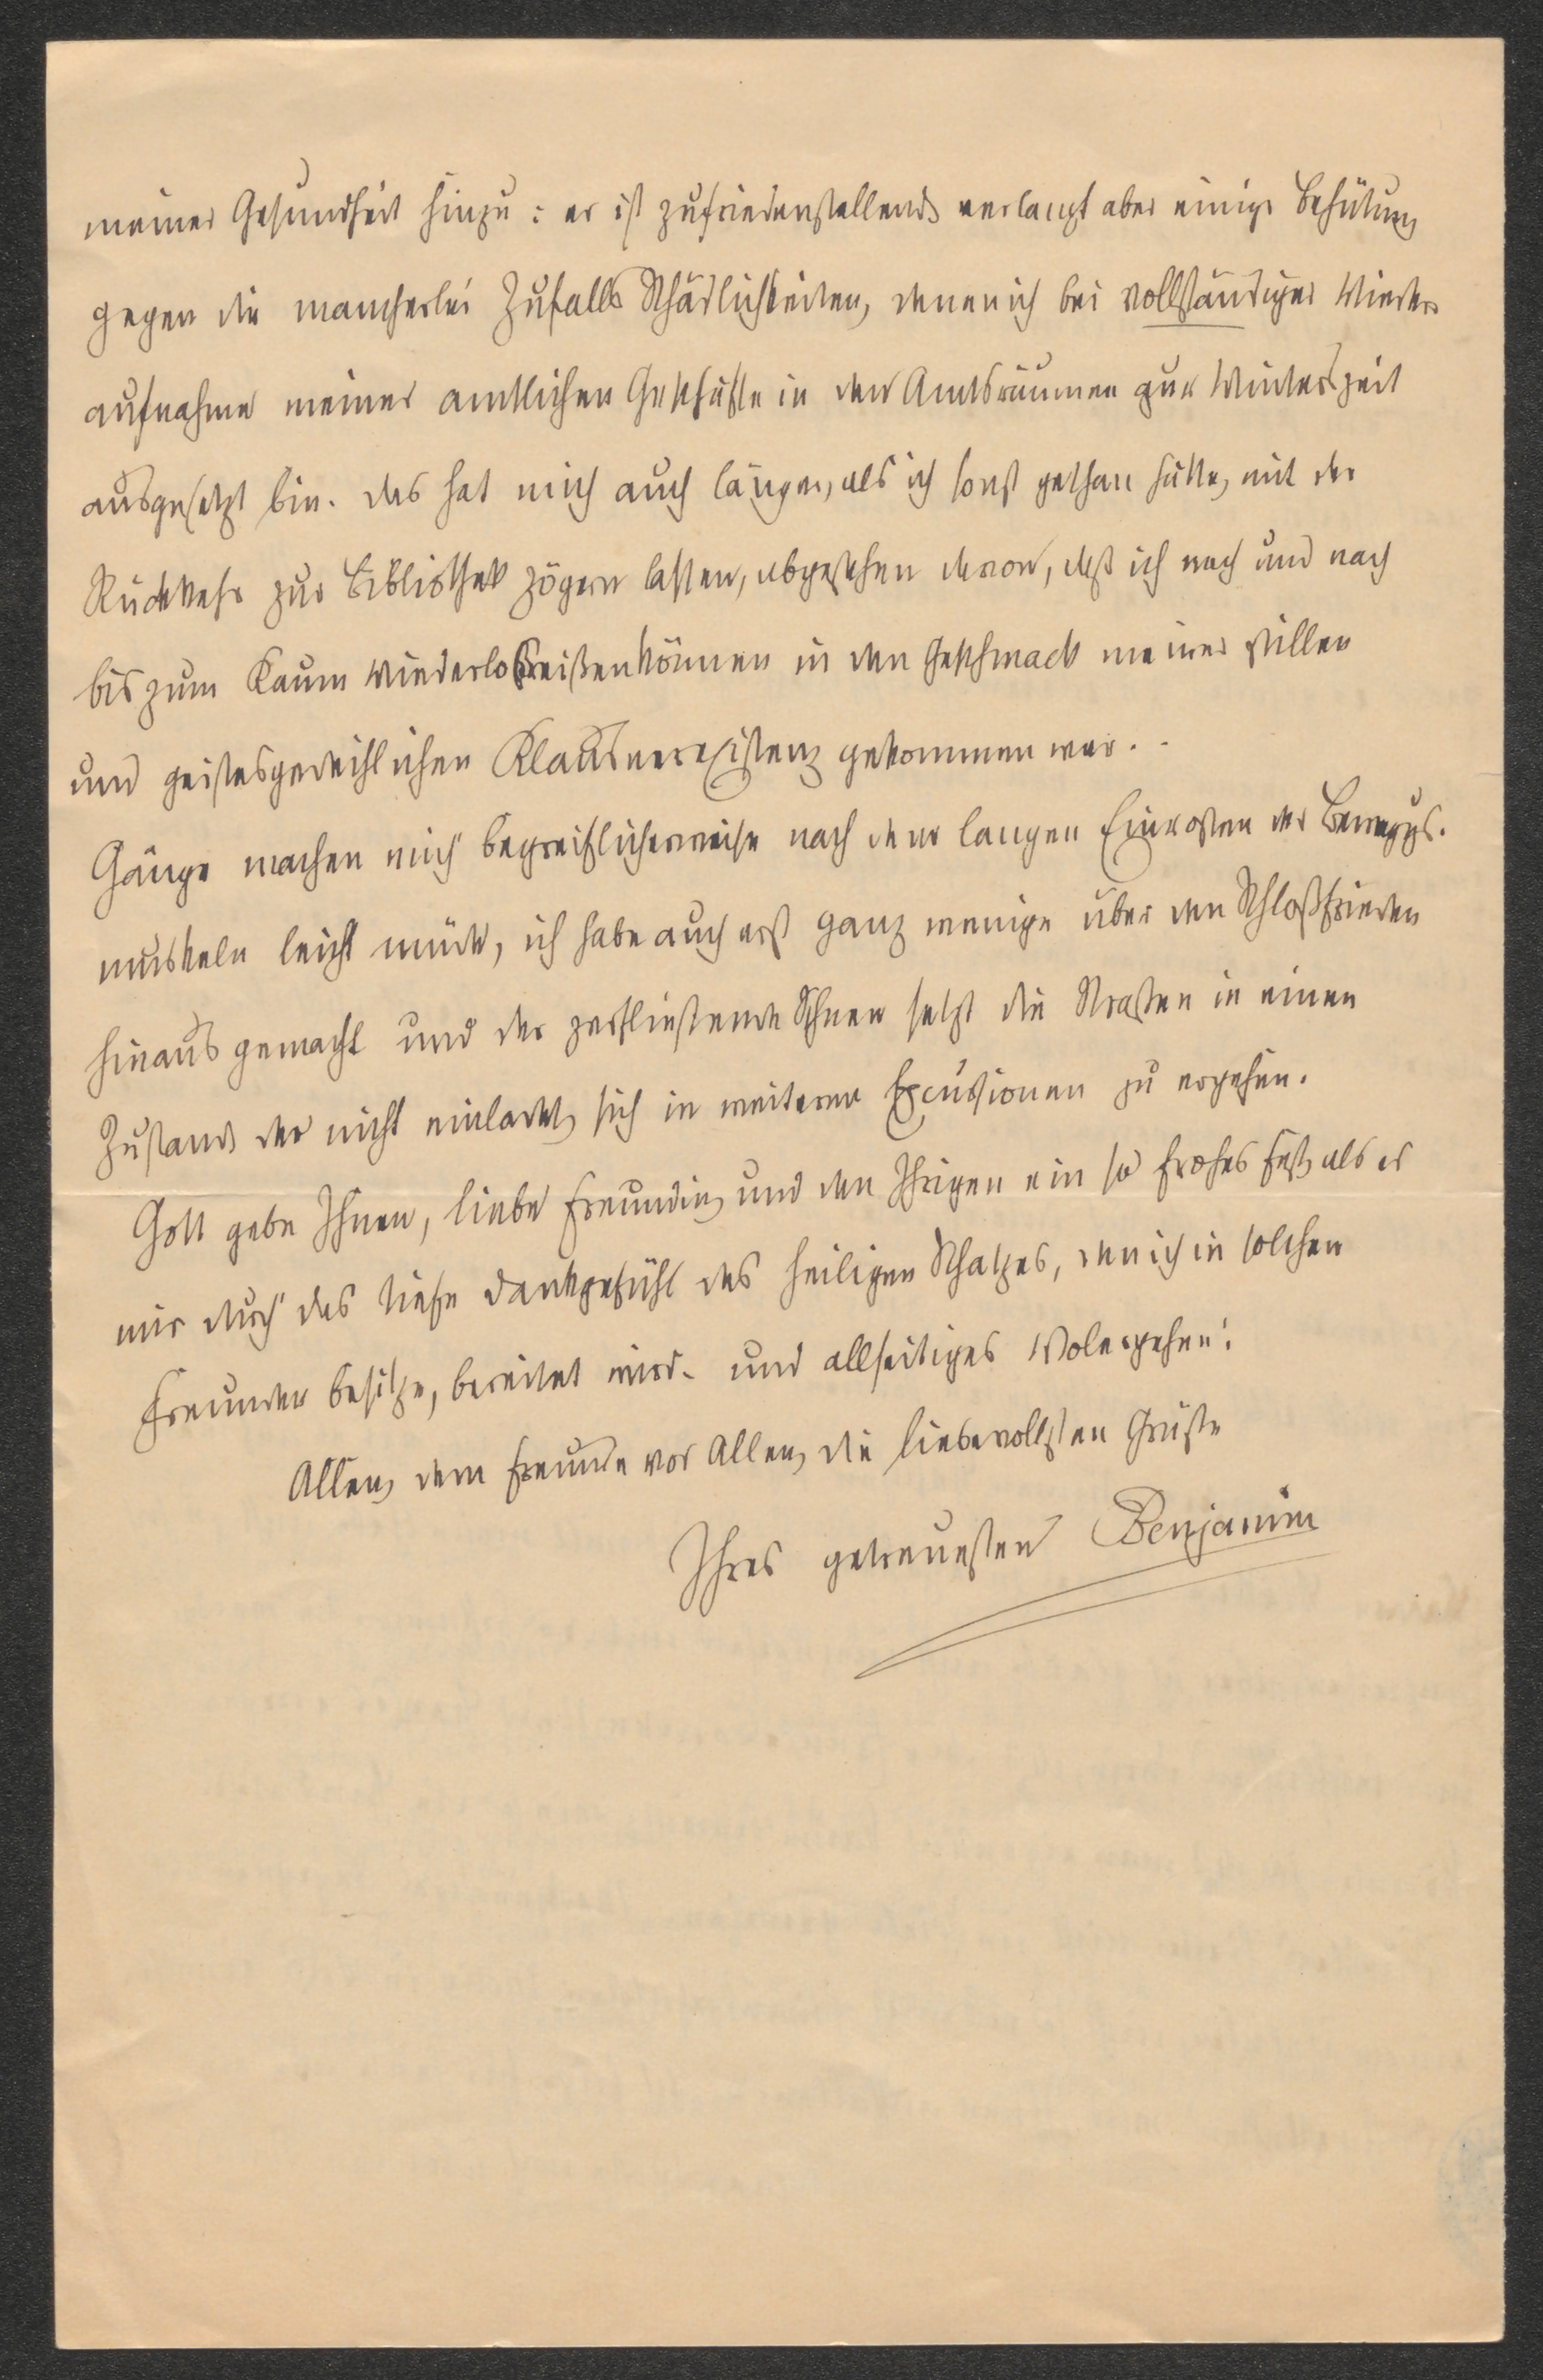 meiner Gesundheit hinzu: er ist zufriedenstellend, verlangt aber einige Behütung
gegen die mancherlei Zufalls Schädlichkeiten, denen ich bei vollständiger Wieder
aufnahme meiner amtlichen Geschäfte in den Amtsräumen zur Winterszeit
ausgesetzt bin. Das hat mich auch länger, als ich sonst gethan hätte, mit der
Rückkehr zur Bibliothek zögern lassen, abgesehen davon, daß ich nach und nach
bis zum Kaum Wiederlosreißenkönnen in den Geschmack meiner stillen
und geistesgedeihlichen Klausnerexistenz gekommen war. -
Gänge machen mich begreiflicherweise nach dem langen Einrosten der Beweggs.
muskeln leicht müde, ich habe auch erst ganz wenige über den Schloßfrieden
hinaus gemacht und der zerfließende Schnee setzt die Strassen in einen
Zustand der nicht einladet, sich in weiteren Excursionen zu ergehen.
Gott gebe Ihnen, liebe Freundin, und den Ihrigen ein so frohes Fest, als es
mir durch das tiefe Dankgefühl des heiligen Schatzes, den ich in solchen
Freunden besitze, bereitet wird. und allseitiges Wolergehen!
Allen, dem Freunde vor Allen, die liebevollsten Grüße
Ihres getreuesten Benjamin